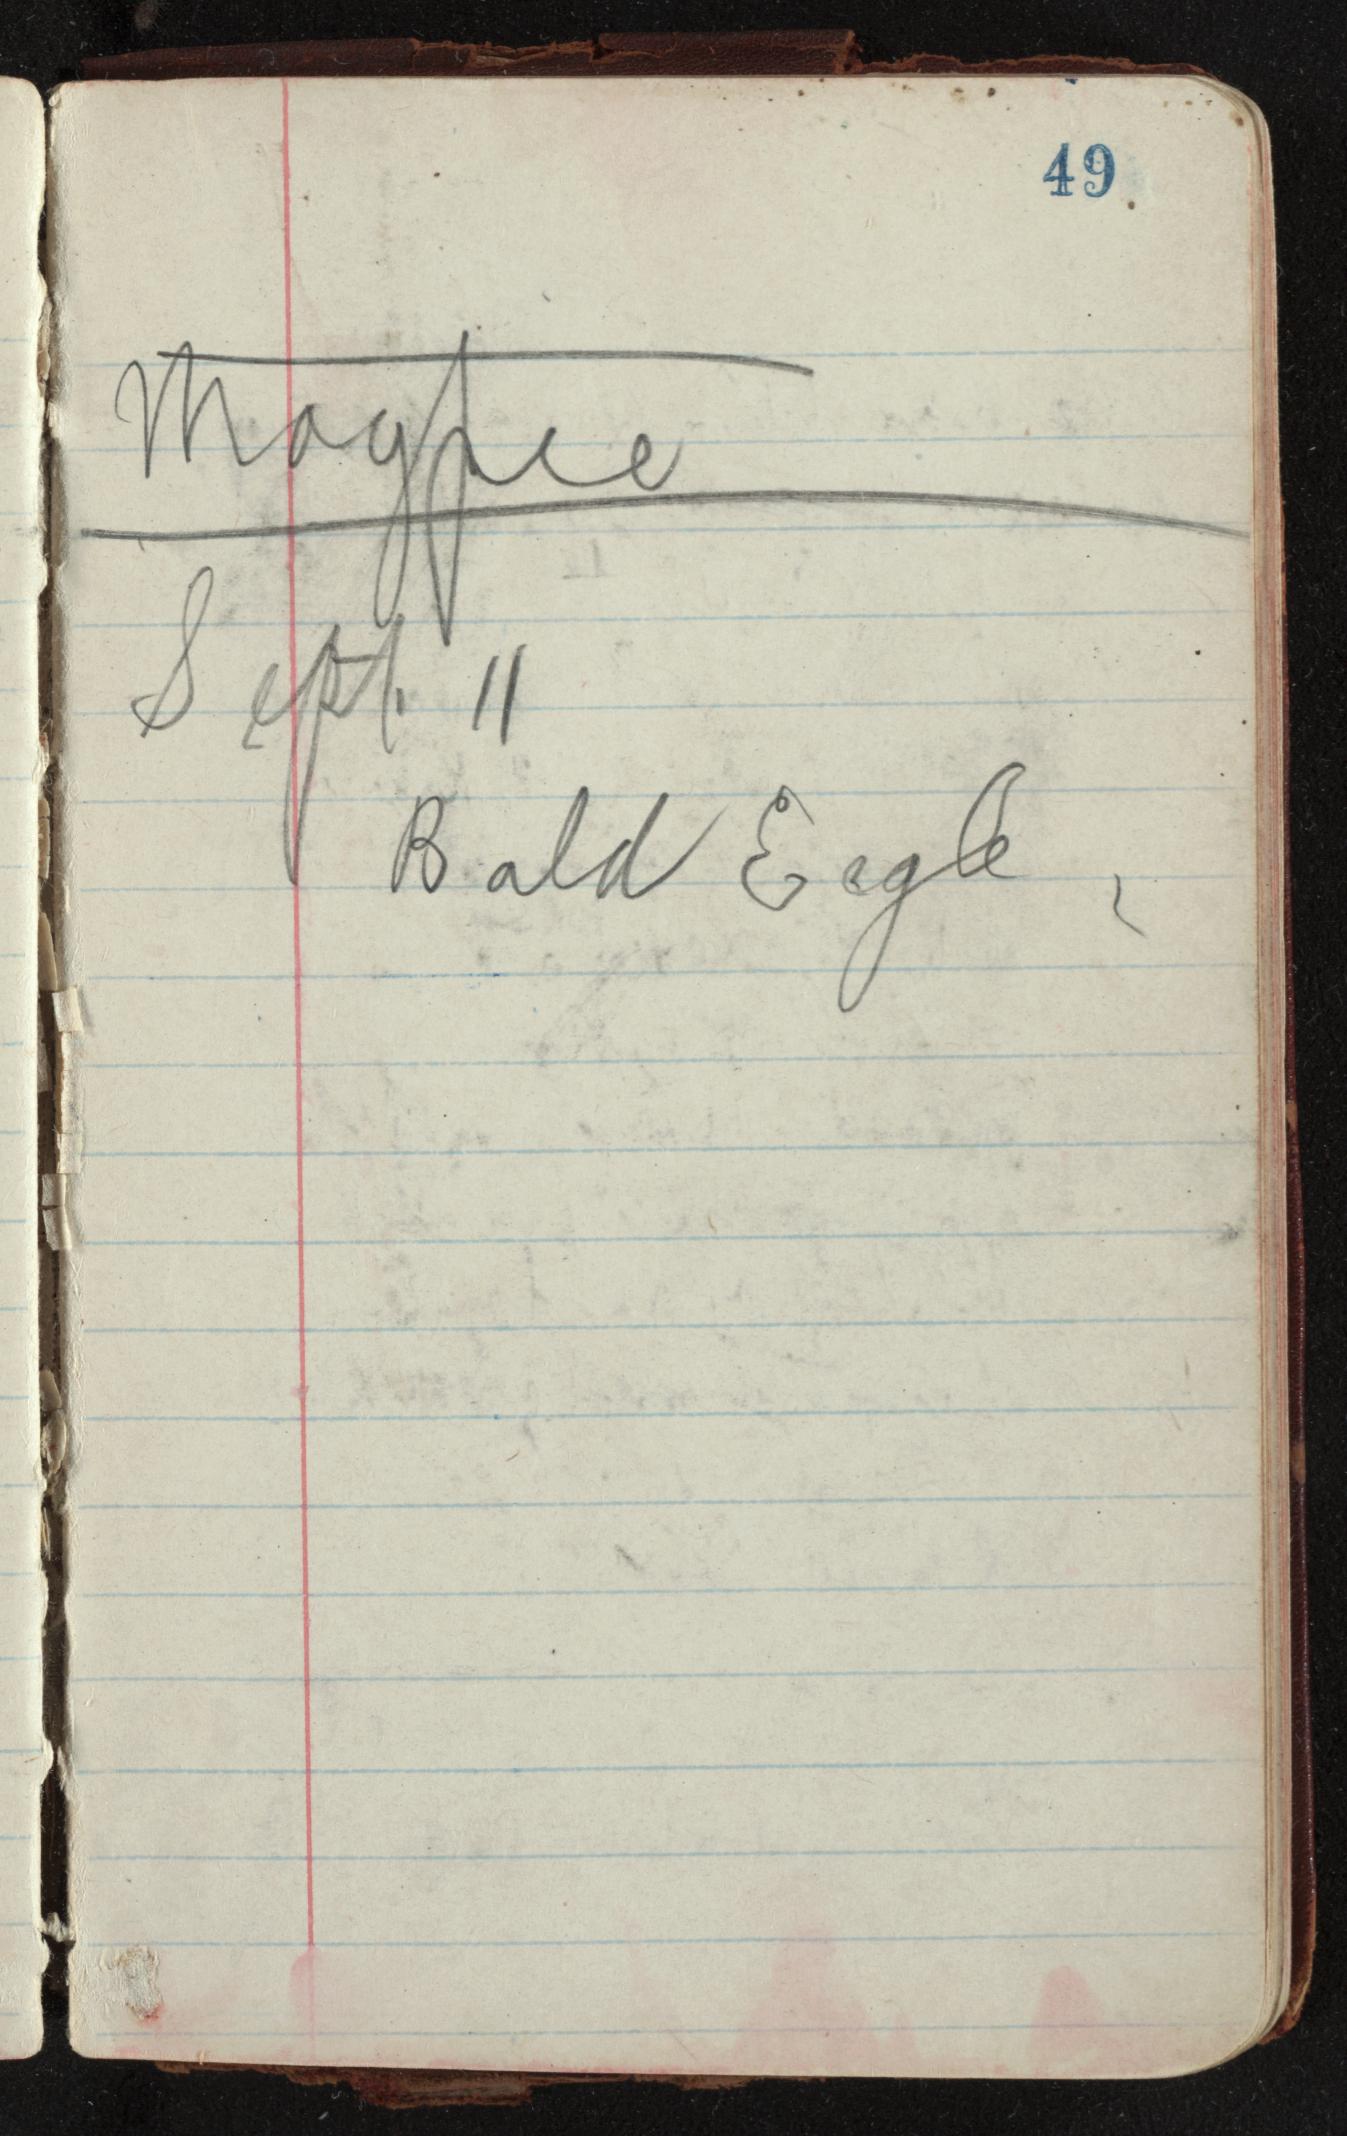 49
Magpie
Sept. 11
Bald Eagle,